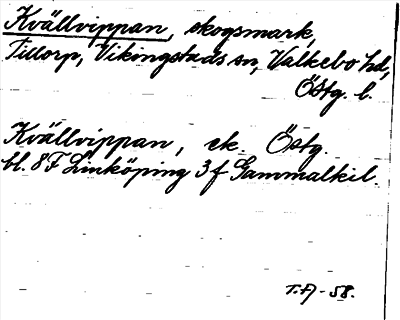 Kvällvippan, skogsmark,
Tillorp, Vikingstads sn, Valkebo hd,
Östg. l.
Kvällvippan, ek. Östg.
bl. 8 F Linköping 3 f Gammalkil.
T.A -58.